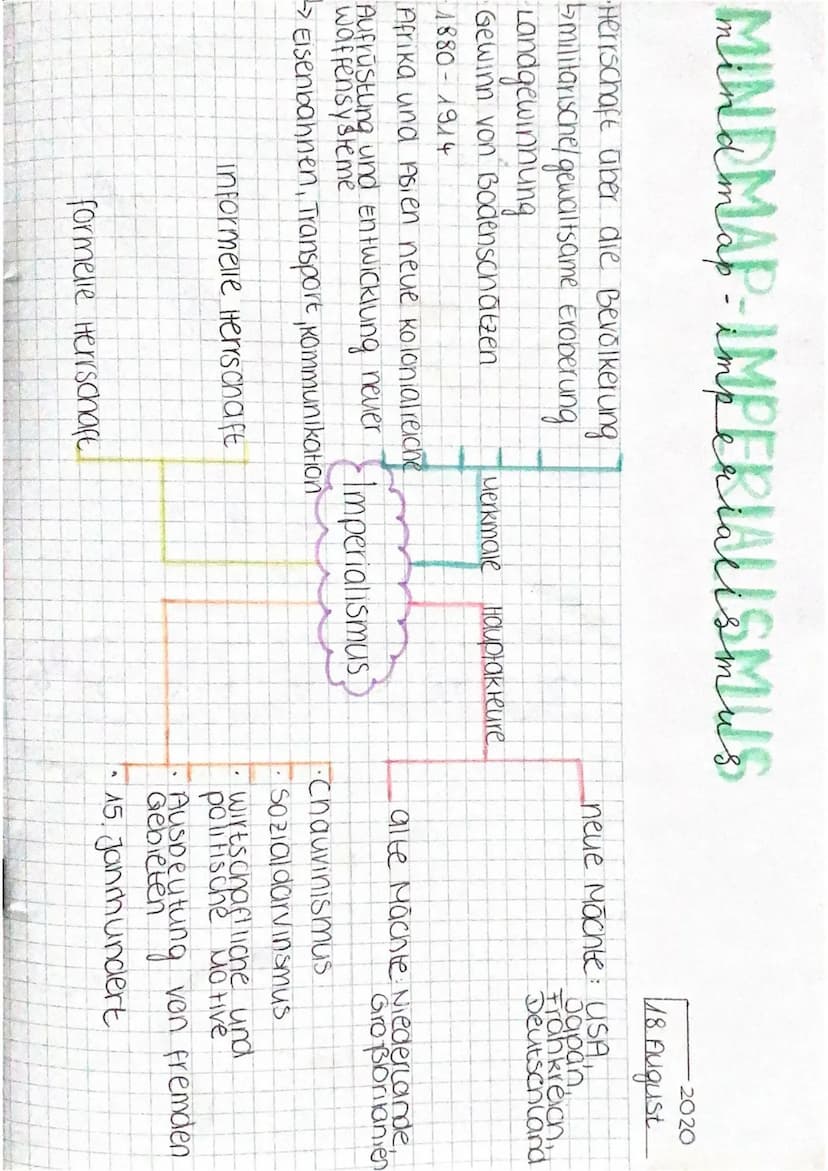 MINDMAP-IMPERIALISMUS
mindmap - imperialismus
2020
18 August
·Herrschaft über die Bevölkerung
↳militärische/gewaltsame Eroberung
Landgewinnung
Gewinn von Bodenschätzen
1880-1914
Afrika und Asien neue Kolonialreiche
Aufrüstung und Entwicklung neuer
Waffensysteme
↳ Eisenbahnen, Transport, Kommunikation
Merkmale
Hauptakteure
neue Mächte: USA,
Japan,
Frankreich,
Deutschland
alte Mächte: Niederlande,
Großbritanien
Imperialismus
informelle Herrschaft
formelle Herrschaft
·Chauvinismus
·Sozialdarvinsmus
·wirtschaftliche und
politische Motive
·Ausbeutung von fremden
Gebieten
·15. Jahrhundert